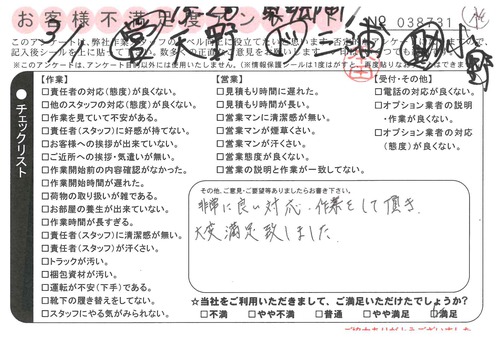 お客様不満足度アンケート
No 038731
3/1
天野
小野
このアンケートは、弊社作業
※このアンケートは、アンケート目的以外には使用いたしません。
チェックリスト
【作業】
□責任者の対応(態度)が良くない。
□他のスタッフの対応(態度)が良くない。
□作業を見ていて不安がある。
□責任者(スタッフ)に好感が持てない。
□お客様への挨拶が出来ていない。
□ご近所への挨拶・気遣いが無い。
□作業開始前の内容確認がなかった。
□作業開始時間が遅れた。
□荷物の取り扱いが雑である。
□お部屋の養生が出来ていない。
□作業時間が長すぎる。
□責任者(スタッフ)に清潔感が無い。
□責任者(スタッフ)が汗くさい。
□トラックが汚い。
□梱包資材が汚い。
□運転が不安(下手)である。
□靴下の履き替えをしてない。
□スタッフにやる気がみられない。
【営業】
□見積もり時間に遅れた。
□見積もり時間が長い。
□営業マンに清潔感が無い。
□営業マンが煙草くさい。
□営業マンが汗くさい。
□営業態度が良くない。
□営業の説明と作業が一致してない。
【受付・その他】
□電話の対応が良くない。
□オプション業者の説明
・作業が良くない。
□オプション業者の対応
(態度)が良くない。
その他、ご意見・ご要望等ありましたらお書き下さい。
非常に良い対応、作業をして頂き、
大変満足致しました。
☆当社をご利用いただきまして、ご満足いただけたでしょうか?
□不満 □やや不満 □普通 □やや満足 □満足
ご協力ありがとうございました